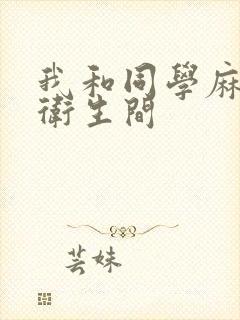 我和同學麻
衛生間
芸妹